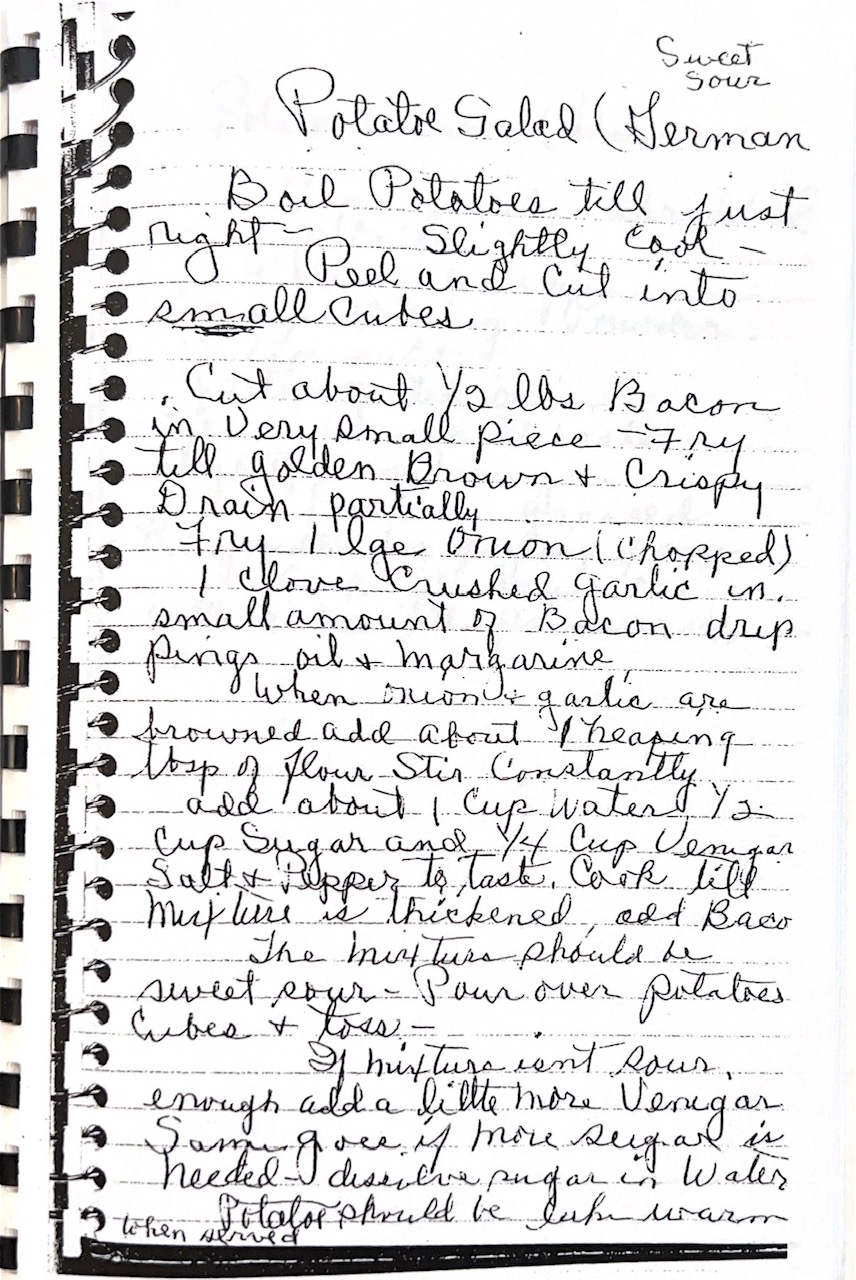 Sweet
Sour
Potatoe Salad (German
Boil Potatoes till just
right - Slightly Cool -
Peel and Cut into
small Cubes
. Cut about 1/2 lbs Bacon
in Very small piece - Fry
till golden Brown & Crispy
Drain partially
Fry 1 lge Onion (Chopped)
1 Clove Crushed garlic in.
small amount of Bacon drip
pings oil & margarine,
When onion & garlic are
browned add about 1 heaping
tbsp of flour Stir Constantly
add about 1 Cup Water, 1/2
Cup Sugar and 1/4 Cup Venigar
Salt & Pepper to taste. Cook till
Mixture is thickened, add Baco
The mixture should be
sweet sour - Pour over potatoes
Cubes & toss -
If mixture isnt sour.
enough add a little more Venigar
Same goes if more sugar is
needed - dissolve sugar in Water
Potatoe should be luke warm
when served